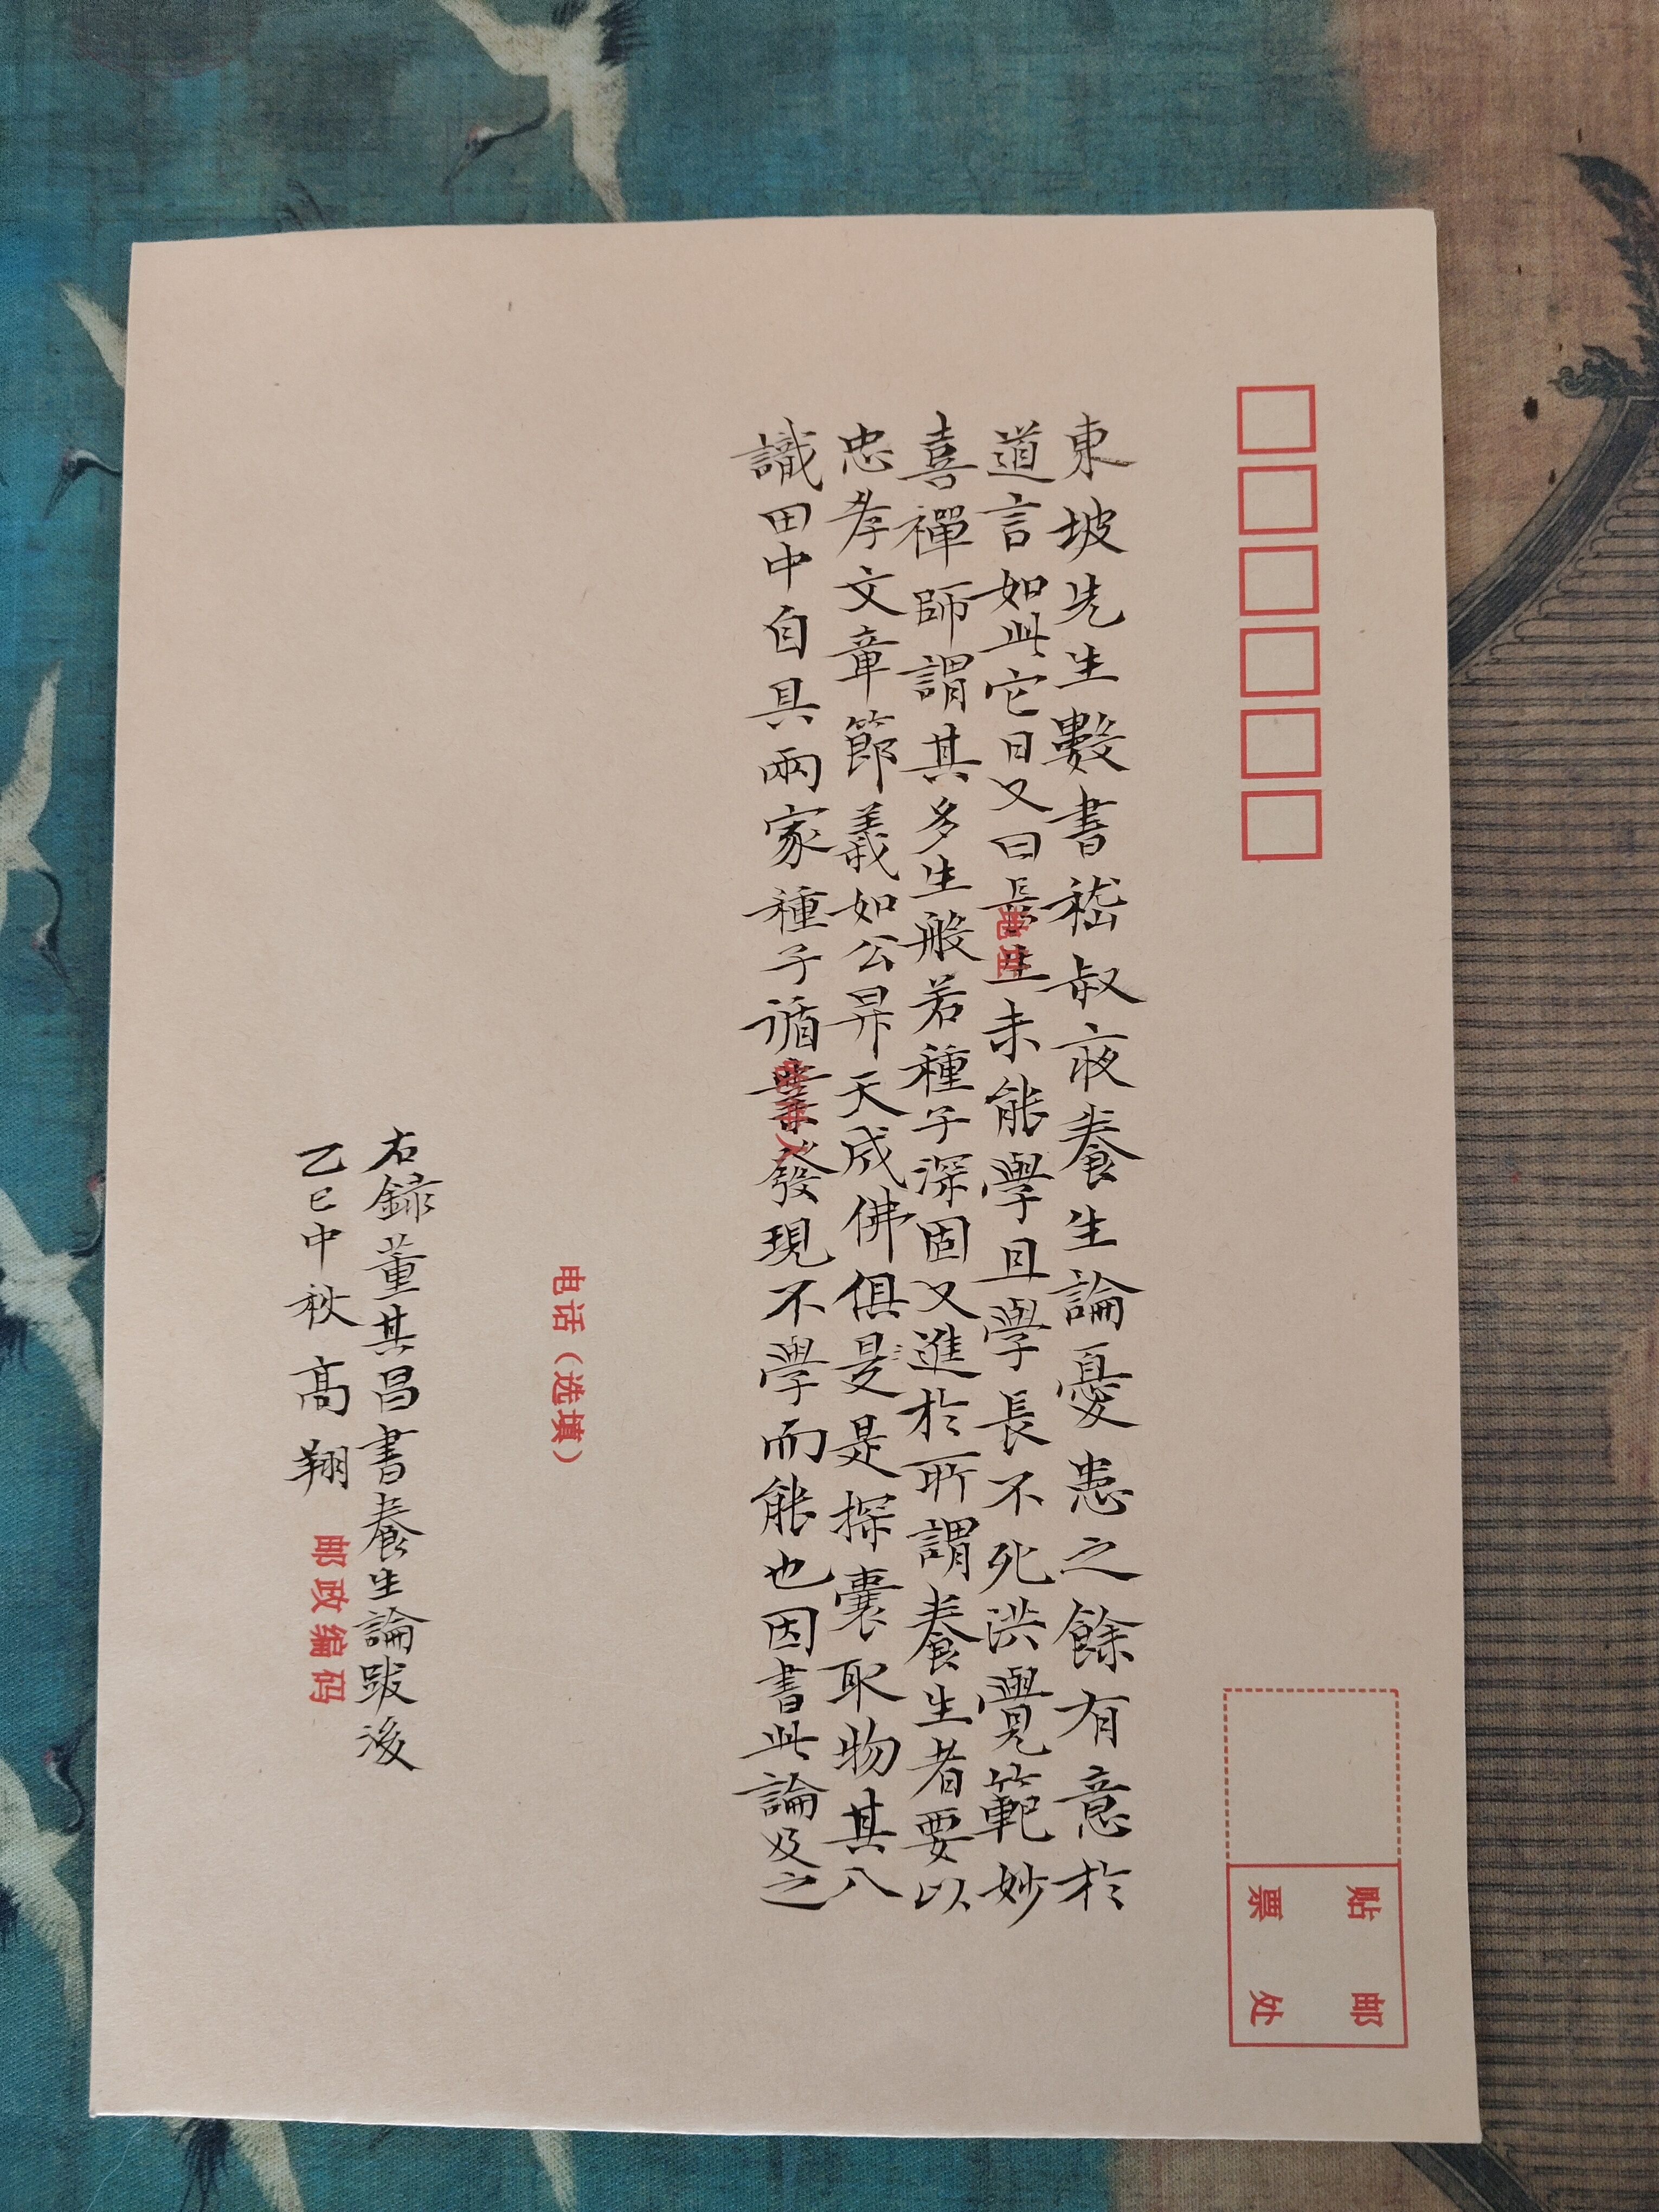 東坡先生數書嵇叔夜養生論憂患之餘有意於
道言如此它日又曰長生未能學且學長不死洪覺範妙
喜禪師謂其多生般若種子深固又進於所謂養生者要以
忠孝文章節義如公昇天成佛俱是是探囊取物其八
識田中自具兩家種子循業發現不學而能也因書此論及之
右録董其昌書養生論跋後
乙巳中秋 高翔
地址
收件人
电话（选填）
邮政编码
贴邮
票处